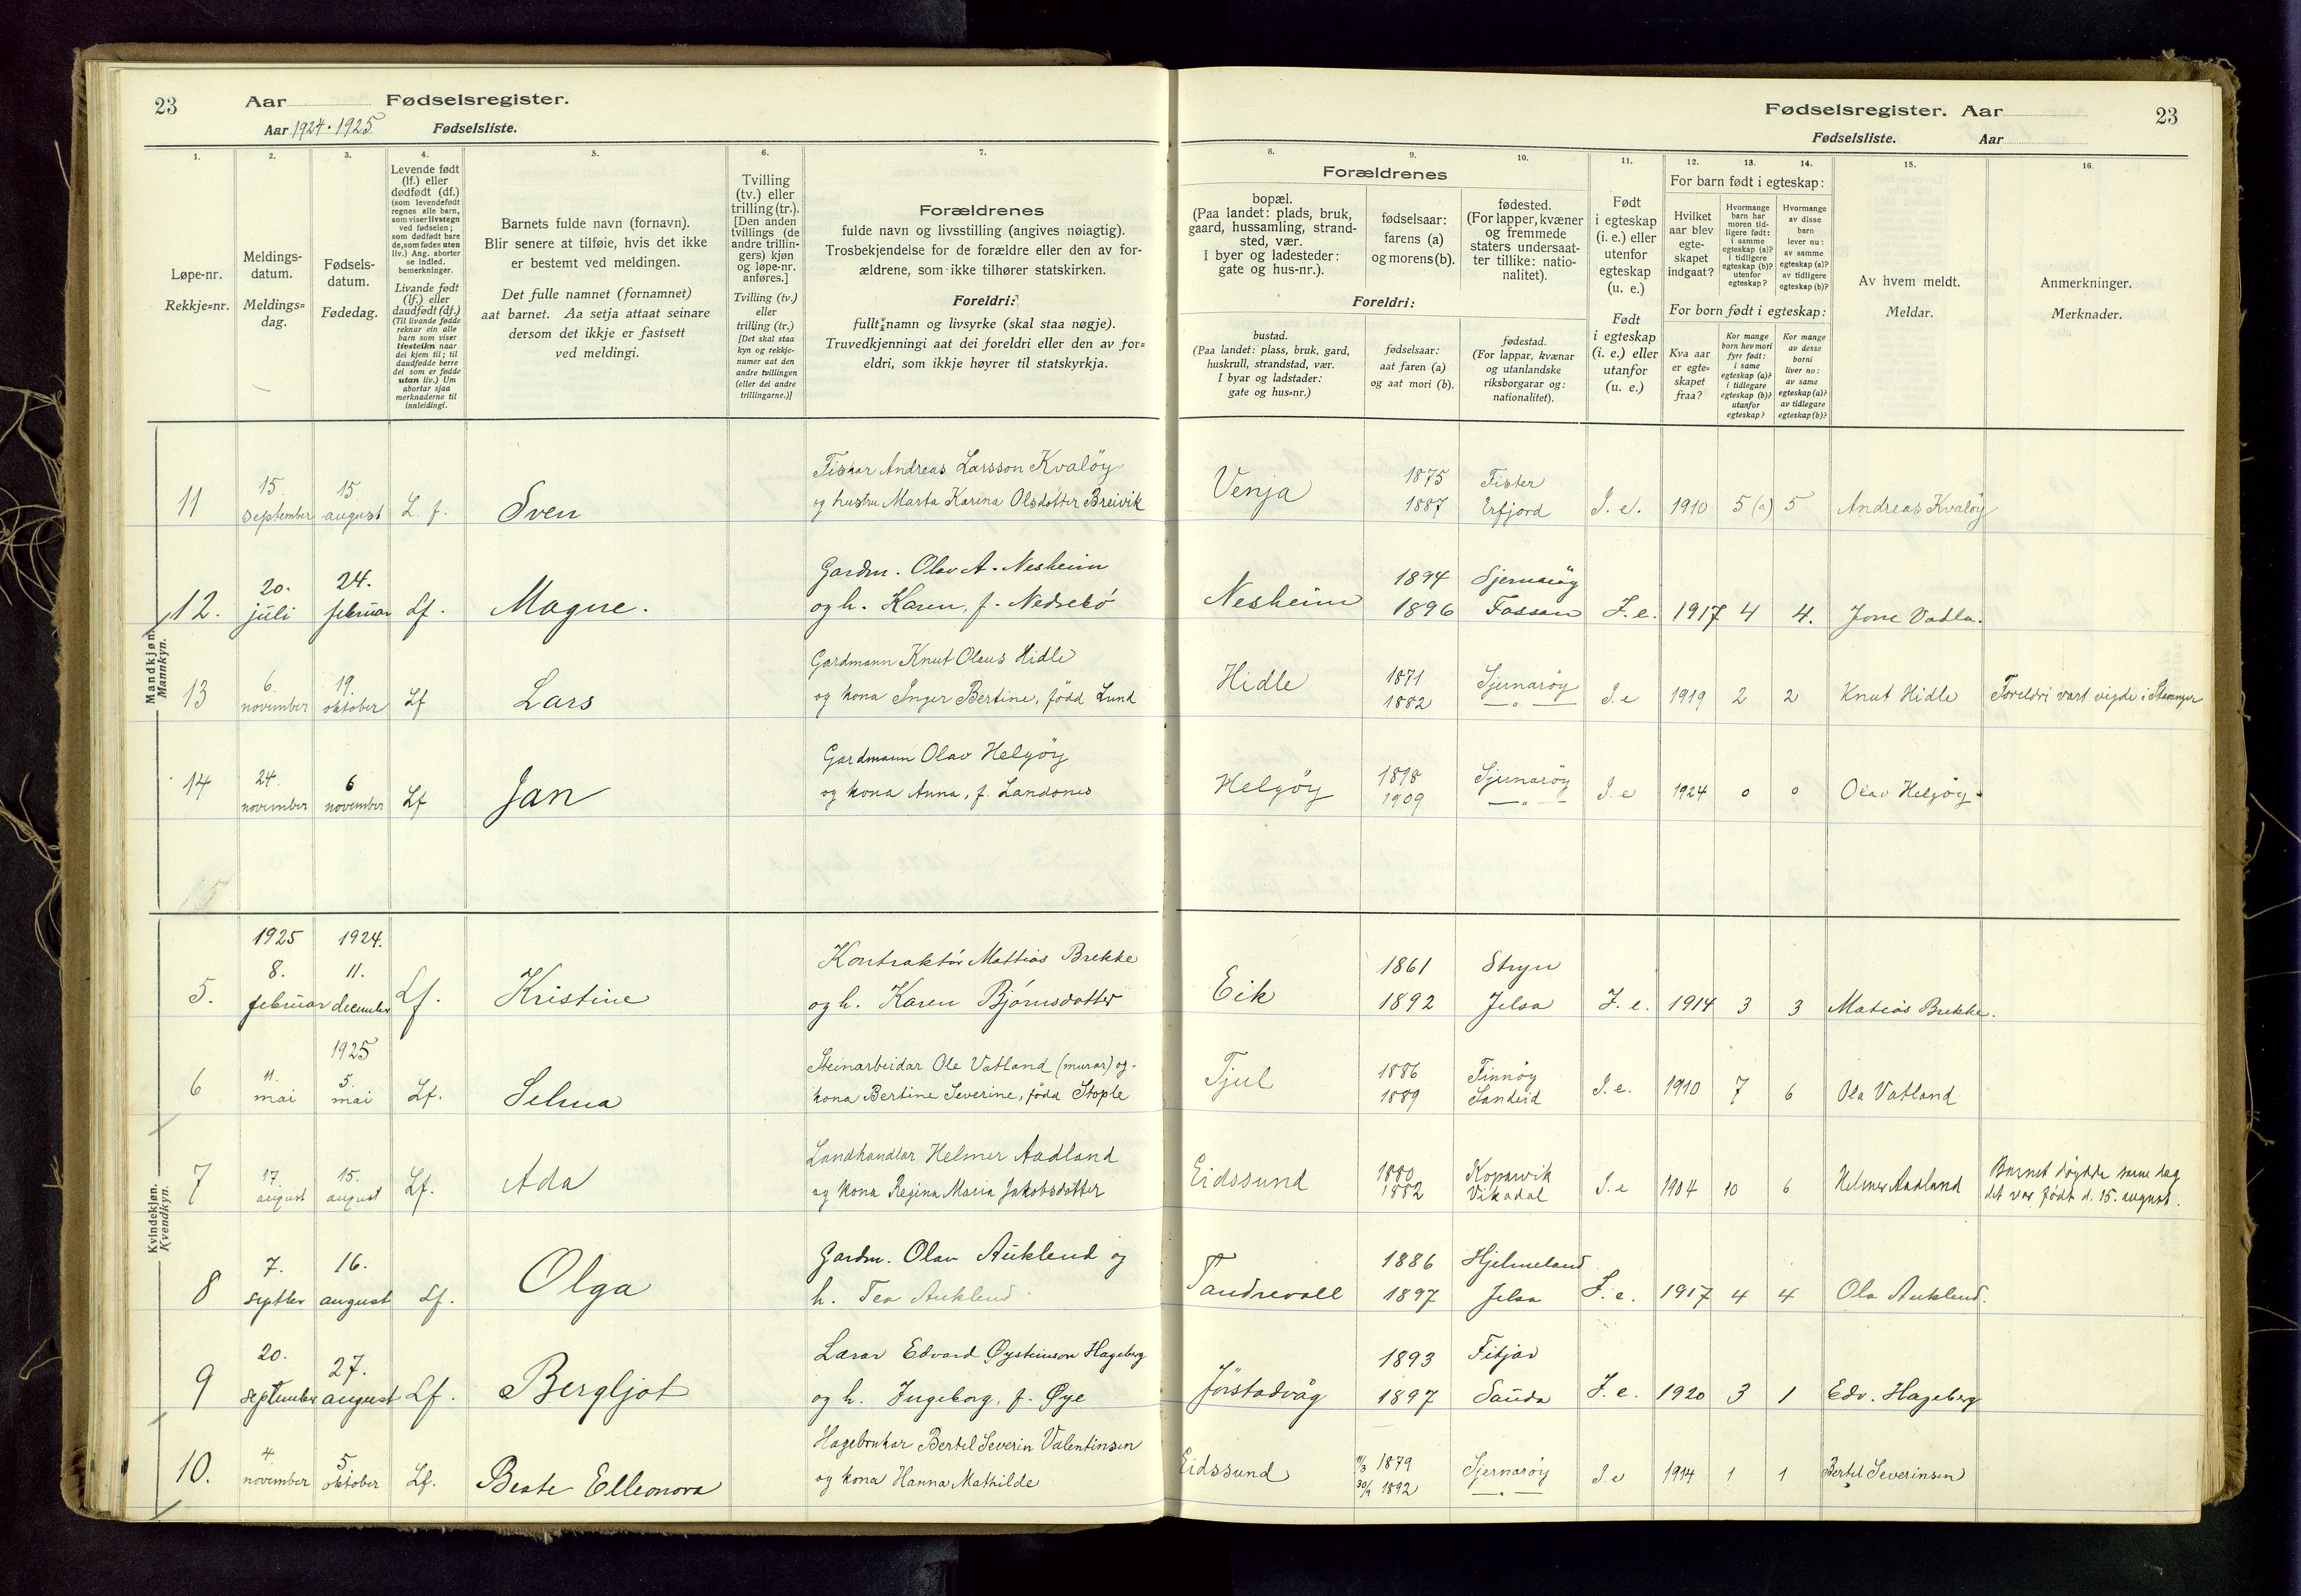 23 Aar Fødselsregister.
Aar 1924-1925 Fødselsliste.
Fødselsregister. Aar 23
Fødselsliste. Aar
1. 2. 3. 4. 5. 6. 7.
Løpe-nr.
Rekkje=nr.
Meldings-
datum.
Meldings=
dag.
Fødsels-
datum.
Fødedag.
Levende født
(lf.) eller
dødfødt (df.)
(som levendefødt
regnes alle barn,
som viser livstegn
ved fødselen;
som dødfødt bare
de, som fødes uten
liv.) Ang. aborter
se indled.
bemerkninger.
Livande født
(lf.) eller
daudfødt (df.)
(Til livande fødde
reknar ein alle
barn som viser
livsteikn naar
dei kjem til; til
daudfødde berre
dei som er fødde
utan liv.) Um
abortar sjaa
merknaderne til
innleidingi.
Barnets fulde navn (fornavn).
Blir senere at tilføie, hvis det ikke
er bestemt ved meldingen.
Det fulle namnet (fornamnet)
aat barnet. Aa setja attaat seinare
dersom det ikkje er fastsett
ved meldingi.
Tvilling
(tv.) eller
trilling (tr.).
[Den anden
tvillings (de
andre trillin-
gers) kjøn
og løpe-nr.
anføres.]
Tvilling (tv.)
eller
trilling (tr.)
[Det skal staa
kyn og rekkje-
numer aat den
andre tvillingen
(eller dei andre
trillingarne.)]
Forældrenes
fulde navn og livsstilling (angives nøiagtig).
Trosbekjendelse for de forældre eller den av for-
ældrene, som ikke tilhører statskirken.
Foreldri:
fullt namn og livsyrke (skal staa nøgje).
Truvedkjenningi aat dei foreldri eller den av for=
eldri, som ikkje høyrer til statskyrkja.
8. 9. 10. 11. 12. 13. 14. 15. 16.
Forældrenes
bopæl.
(Paa landet: plads, bruk,
gaard, hussamling, strand-
sted, vær.
I byer og ladesteder:
gate og hus-nr.).
fødselsaar:
farens (a)
og morens (b).
fødested.
(For lapper, kvæner
og fremmede
staters undersaat-
ter tillike: natio-
nalitet).
Foreldri:
bustad.
(Paa landet: plass, bruk, gard,
huskrull, strandstad, vær.
I byar og ladstader:
gate og hus=nr.)
fødselsaar:
aat faren (a)
og aat mori (b).
fødestad.
(For lappar, kvænar
og utanlandske
riksborgarar og:
nationalitet).
Født
i egteskap
(i. e.) eller
utenfor
egteskap
(u. e.)
Født
i egteskap
(i. e.) eller
utanfor
(u. e.)
For barn født i egteskap:
Hvilket
aar blev
egte-
skapet
indgaat?
Hvormange
barn har
moren tid-
ligere født:
i samme
egteskap (a)?
i tidligere
egteskap (b)?
utenfor
egteskap?
Hvormange
av disse
barn
lever nu:
av samme
egteskap (a)?
av tidligere
egteskap (b)?
For born født i egteskap:
Kva aar
er egte=
skapet
fraa?
Kor mange
born hev mori
fyrr født:
i same
egteskap (a)?
i tidlegare
egteskap (b)?
utanfor
egteskap?
Kor mange
av desse
borni
liver no:
av same
egteskap (a)?
av tidlegare
egteskap (b)?
Av hvem meldt.
Meldar.
Anmerkninger.
Merknader.
Mandkjøn.
Mannkyn.
11 15. september 15. august L. f. Sven
Fiskar Andreas Larsson Kvaløy
og hustru Marta Karina Olsdotter Breivik
Venja 1875 Fister
1887 Erfjord I. e. 1910 5 (a) 5 Andreas Kvaløy
12. 20. juli 24. februar Lf. Magne.
Gardm. Olav A. Nesheim
og h. Karen, f. Nedrebö
Nesheim 1894 Sjernarøy
1896 Fossan I. e. 1917 4 4. Jone Vadla.
13 6. november 19. oktober Lf Lars
Gardmann Knut Olaus Hidle
og kona Inger Bertine, född Lund
Hidle 1871 Sjernarøy
1882 — " — I. e 1919 2 2 Knut Hidle Foreldri vart vigde i Stavanger
14 24. november 6 november Lf Jan
Gardmann Olav Helgöy
og kona Anna, f. Landsnes
Helgöy 1898 Sjernaröy
1909 — " — I. e 1924 0 0 Olav Helgöy.
15
Kvindekjøn.
Kvendkyn.
5. 1925 8. februar 1924. 11. december Lf. Kristine
Kontraktör Mattias Brekke
og h. Karen Bjørnsdotter
Eik 1861 Stryn
1892 Jelsa I. e. 1914 3 3 Matias Brekke.
6 11. mai 1925 5. mai Lf. Selma
Steinarbeidar Ole Vatland (murar) og
kona Bertine Severine, född Stople
Tjul 1886 Finnöy
1889 Sandeid I. e. 1910 7 6 Ola Vatland
7 17. august 15. august Lf. Ada
Landhandlar Helmer Aadland
og kona Regina Maria Jakobsdotter
Eidssund 1880 Kopervik
1882 Vikadal I. e 1904 10 6 Helmer Aadland Barnet döydde same dag
det var födt d. 15. august.
8 7. septbr 16. august Lf. Olga
Gardm. Olav Auklend og
h. Tea Auklend
Tandrevoll 1886 Hjelmeland
1897 Jelsa I. e. 1917 4 4 Ola Auklend.
9 20. september 27. august Lf. Bergljot
Lærar Edvard Øysteinson Hageberg
og h. Ingeborg, f. Øye
Jörstadvåg 1893 Fitjar
1897 Sauda I. e. 1920 3 1 Edv. Hageberg
10. 4 november 5 oktober Lf. Beate Elleonora
Hagebrukar Bertel Severin Valentinsen
og kona Hanna Mathilde
Eidssund 11/3 1879 Sjernarøy
30/9 1892 — " — I. e 1914 1 1 Bertel Severinsen